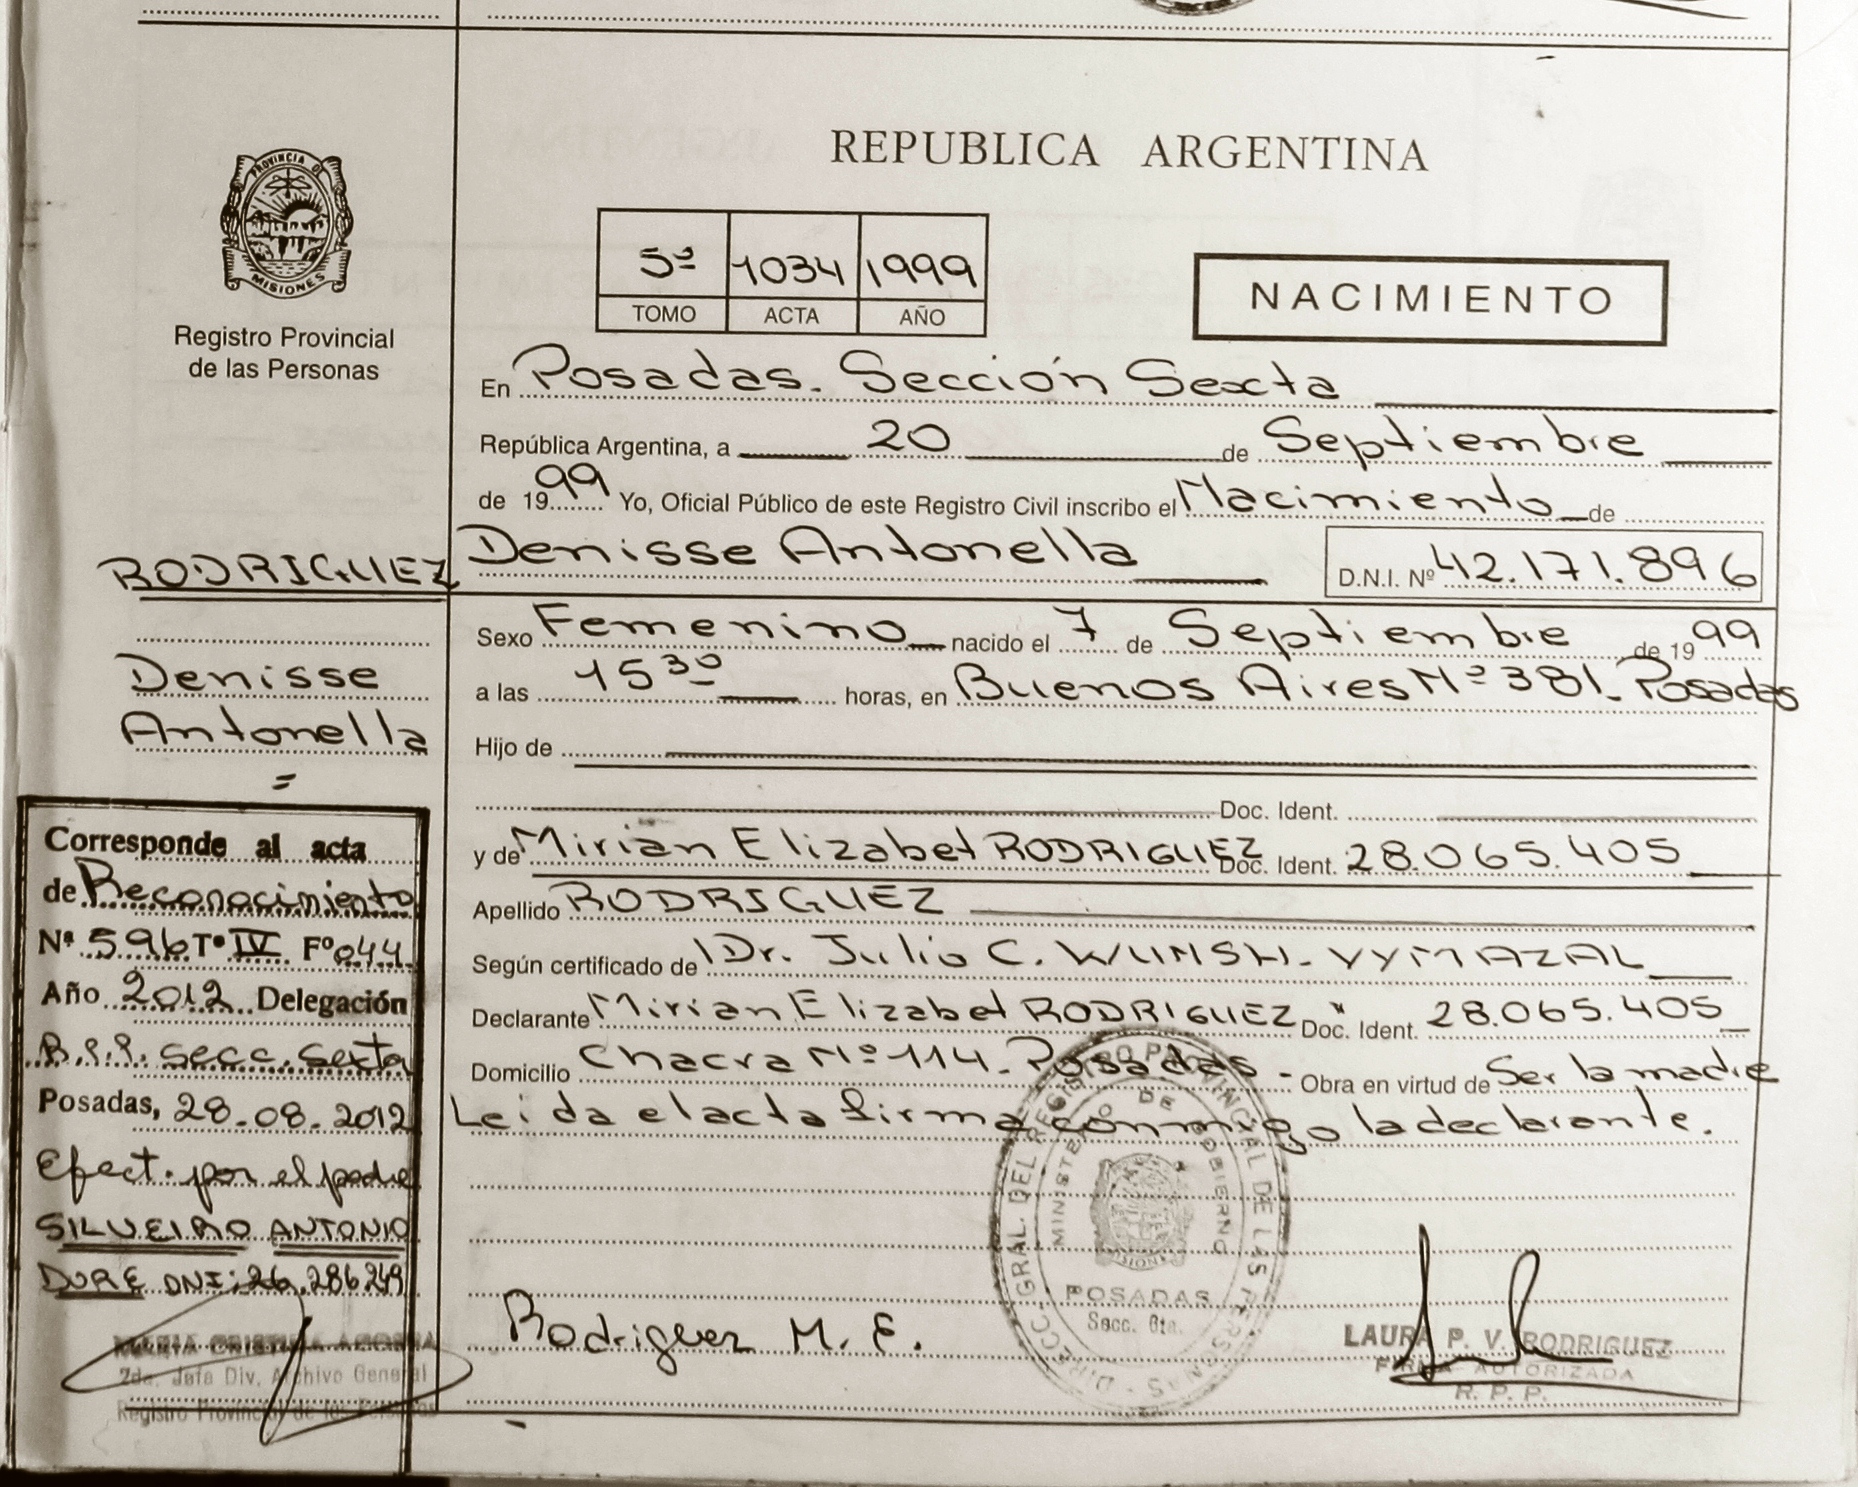 PROVINCIA DE
MISIONES
Registro Provincial
de las Personas
REPUBLICA ARGENTINA
5º 1034 1999
TOMO ACTA AÑO
NACIMIENTO
En Posadas. Sección Sexta
República Argentina, a 20 de Septiembre
de 1999 Yo, Oficial Público de este Registro Civil inscribo el Nacimiento de
RODRIGUEZ Denisse Antonella D.N.I. Nº 42.171.896
Sexo Femenino nacido el 7 de Septiembre de 1999
a las 15 30 horas, en Buenos Aires Nº 381. Posadas
Hijo de
Doc. Ident.
y de Mirian Elizabet RODRIGUEZ Doc. Ident. 28.065.405
Apellido RODRIGUEZ
Según certificado de Dr. Julio C. WUNSH-VYMAZAL
Declarante Mirian Elizabet RODRIGUEZ Doc. Ident. 28.065.405
Domicilio Chacra Nº 114. Posadas - Obra en virtud de Ser la madre
Leida el acta firma conmigo la declarante.
Rodriguez M. E.
DIRECC. GRAL. DEL REGISTRO PROVINCIAL DE LAS PERSONAS
MINISTERIO DE GOBIERNO
MISIONES
POSADAS
Secc. 6ta.
LAURA P. V. RODRIGUEZ
FIRMA AUTORIZADA
R. P. P.
Denisse
Antonella
=
Corresponde al acta
de Reconocimiento
Nº 596 Tº IV Fº 044
Año 2012 Delegación
R.P.P. Secc. Sexta
Posadas, 28-08-2012
Efect. por el padre
SILVEIRO ANTONIO
DORE DNI: 26.286.249
MARIA CRISTINA
2da. Jefa Div. Archivo General
Registro Provincial de las Personas